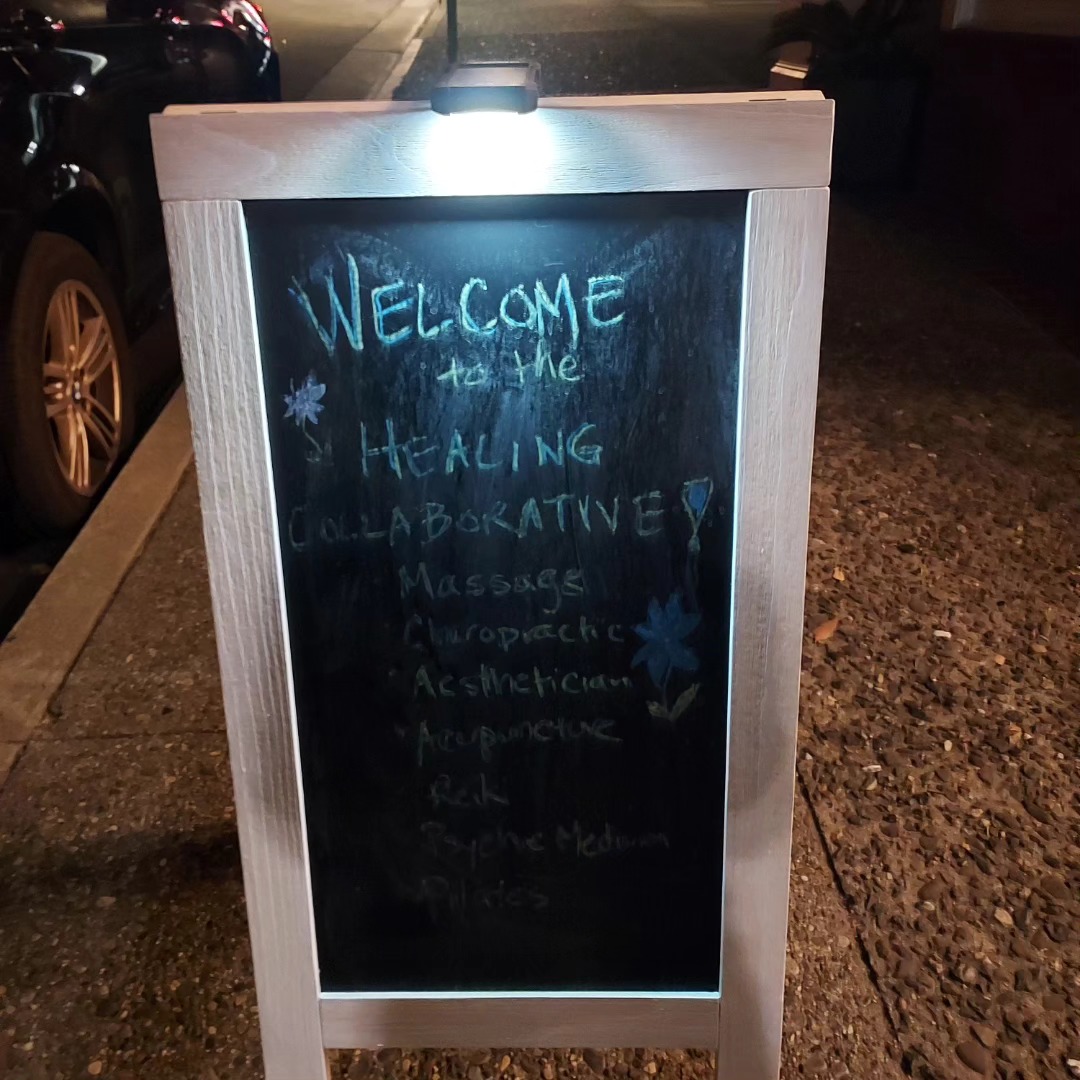 WELCOME
to the
HEALING
COLLABORATIVE!
Massage
Chiropractic
Aesthetician
Acupuncture
Reiki
Psychic Medium
Pilates